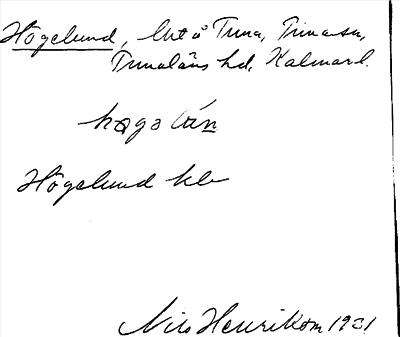 Högelund, lht å Tuna, Tuna sn,
Tunaläns hd, Kalmar l.
høgə lún
Högelund kb
Nils Henrikson 1931